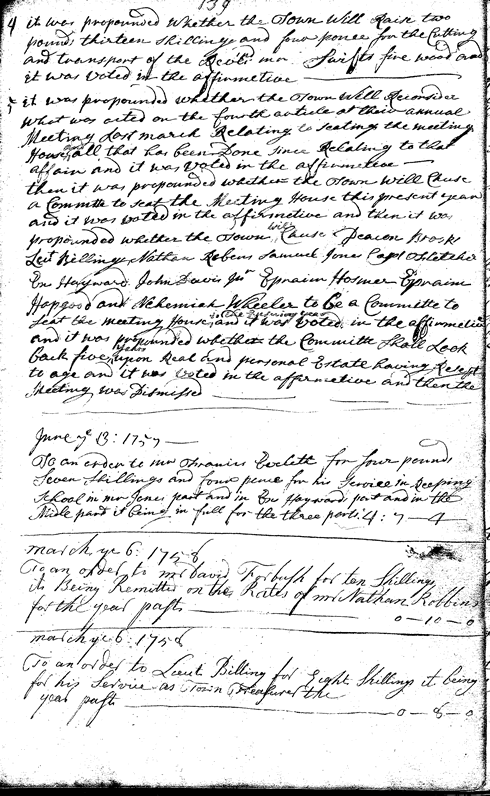 139
4 it was propounded whether the Town Will Raise two
pounds thirteen shillings and four pence for the Cutting
and transport of the Revd mr Swifts fire wood and
it was Voted in the affirmetive
5 it was propounded whether the Town Will Reconsider
what was acted on the fourth article at their annual
Meeting Last march Relating to seating the meeting
House and all that has been Done since Relating to that
affair and it was Voted in the affirmetive
then it was propounded whether the Town Will Cause
a Committe to seat the Meeting House this present year
and it was voted in the affirmetive and then it was
propounded whether the Town will Cause Deacon Brooks
Leit Billing Nathan Robens Samuel Jones Capt Fletcher
En Hayward John Davis Jur Epraim Hosmer Epraim
Hapgood and Nehemiah Wheeler to be a Committe to
seat the meeting House the Ensuing year and it was Voted in the affirmetive
and it was propounded whether the Committe Shall Look
back five years upon Real and personal Estate having Respect
to age and it was Voted in the affirmetive and then the
Meeting was Dismised
June ye 13: 1757
To an order to mr Francis Evelith for four pounds
Seven Shillings and four pence for his Service in Keeping
School in mr Jones part and in En Hayward part and in the
Midle part it being in full for the three parts: 4: 7 - 4
march ye 6: 1758
To an order to mr David Forbush for ten Shillings
it Being Remitted on the Rates of mr Nathan Robbins
for the year past 0 - 10 - 0
march ye 6: 1758
To an order to Lieut Billing for Eight Shillings it being
for his Service as Town Treasurer the
year past 0 - 8 - 0